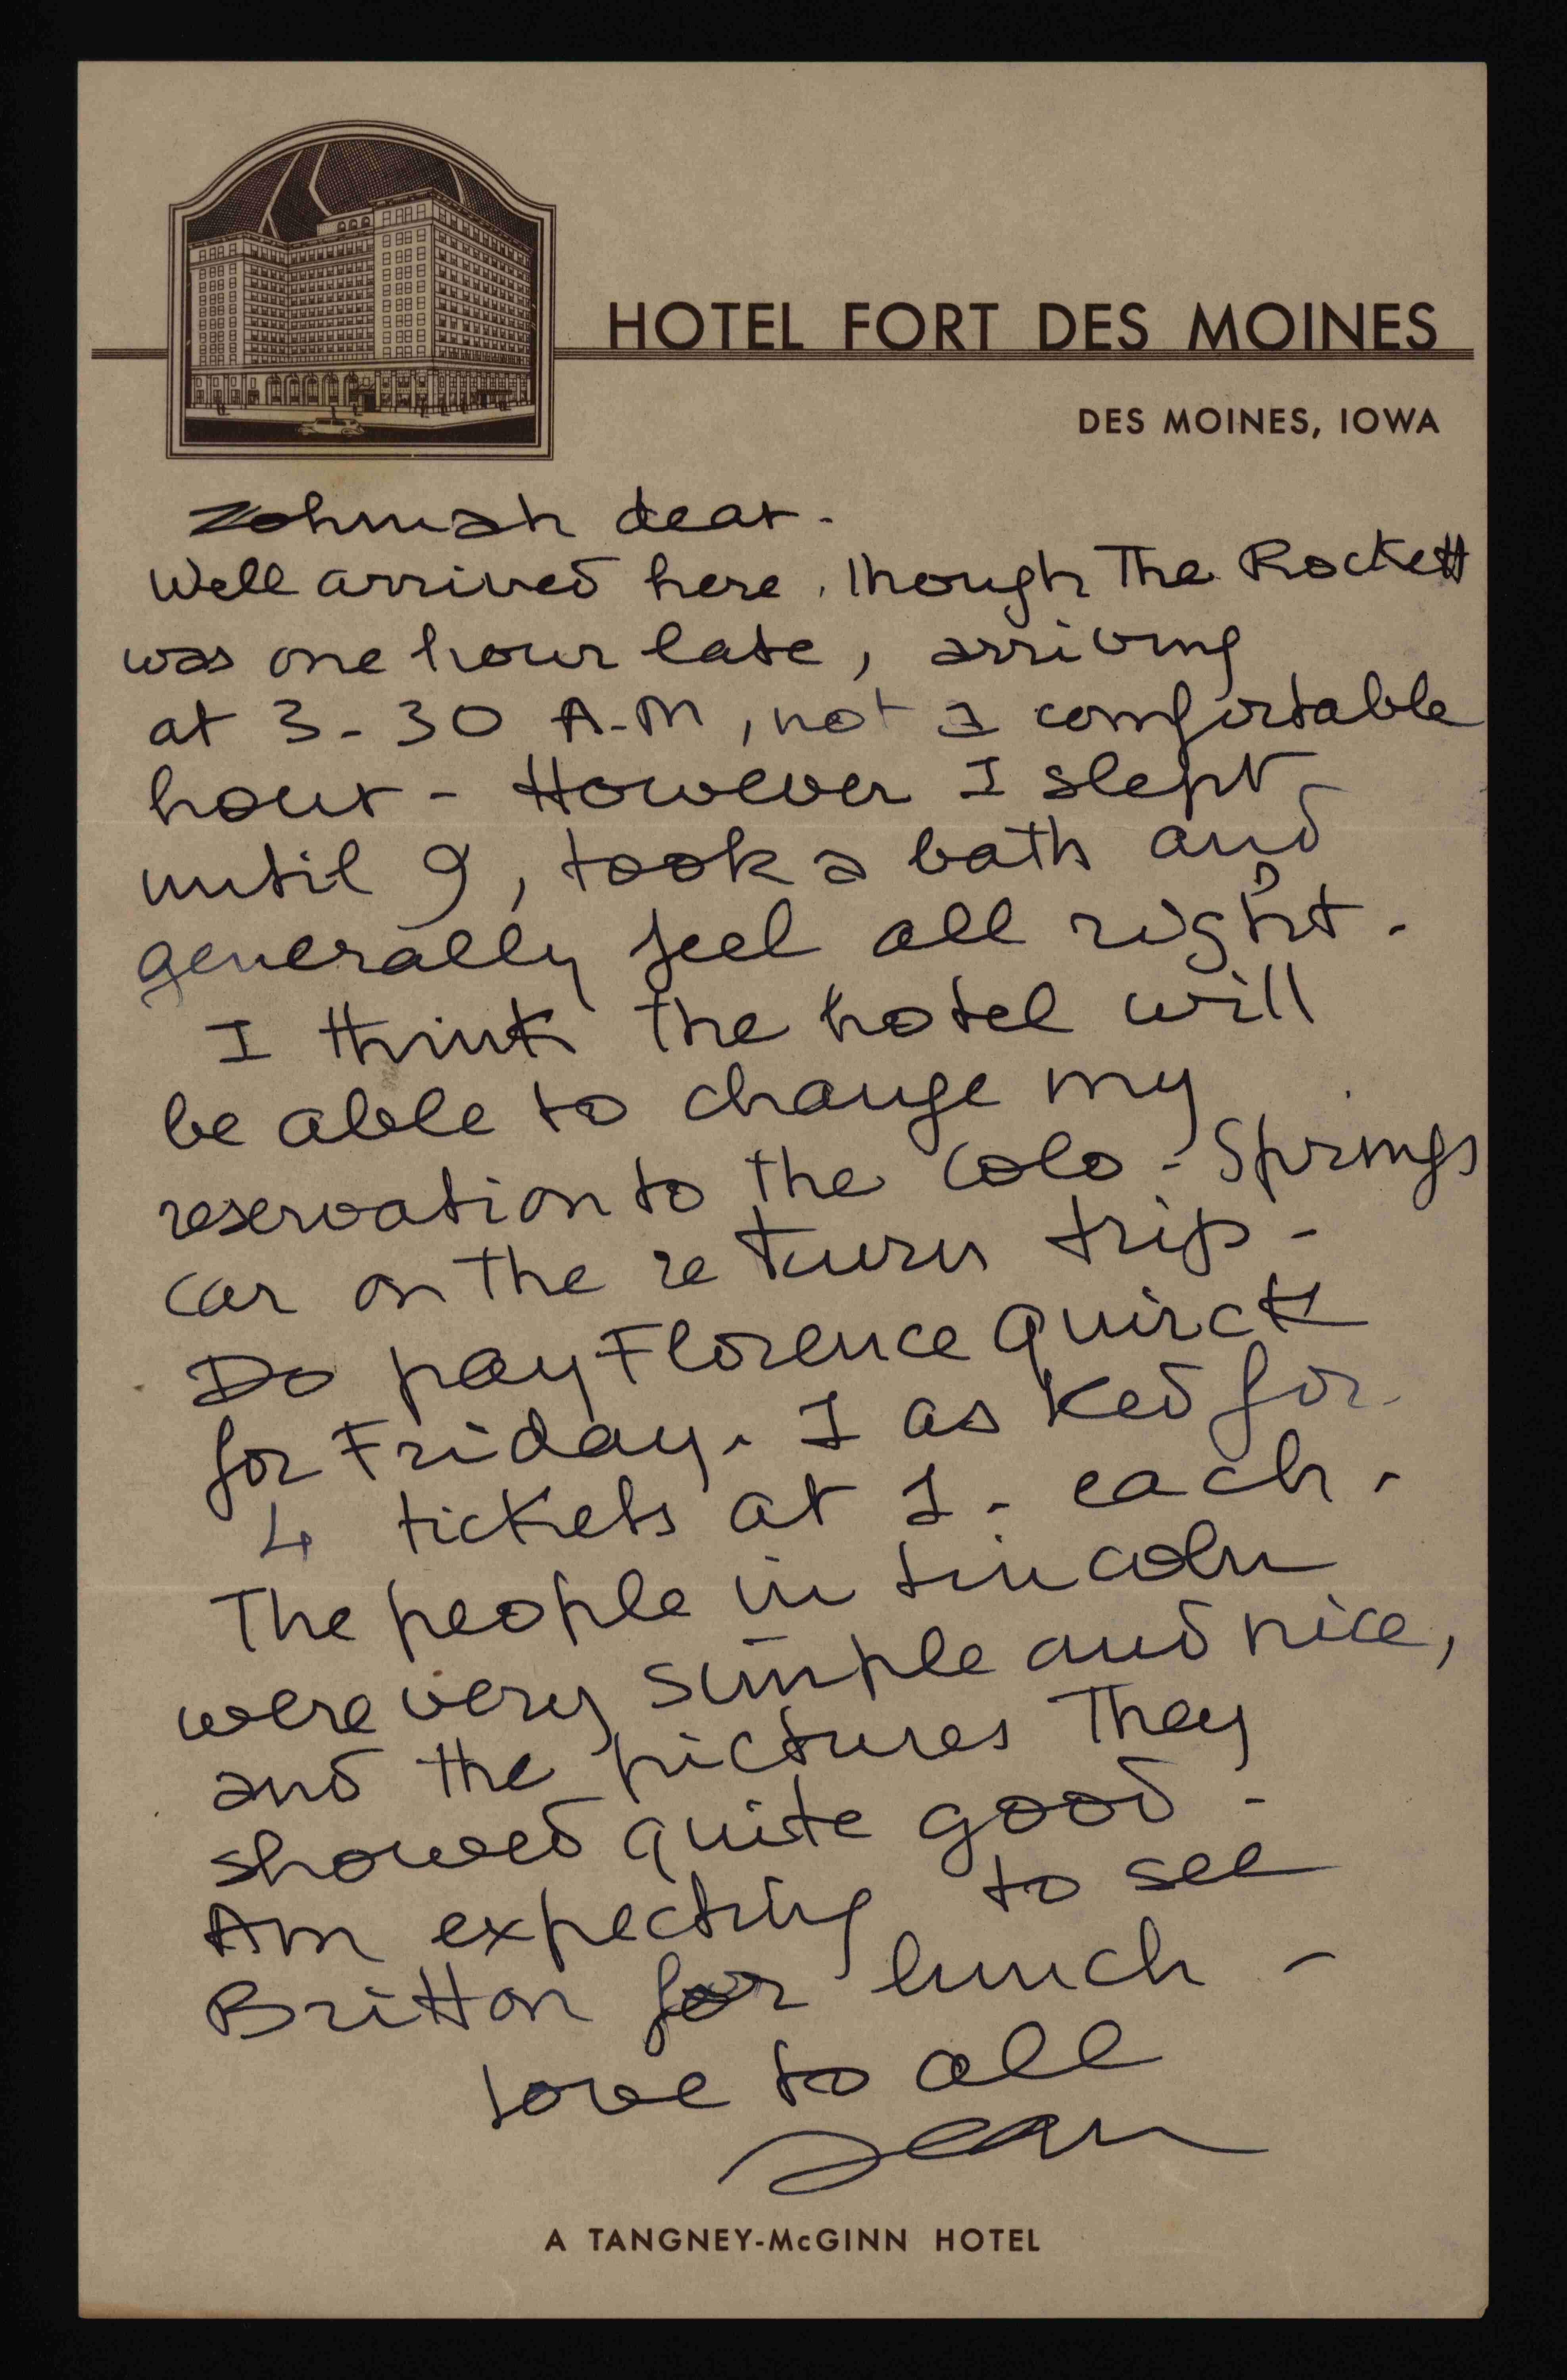 HOTEL FORT DES MOINES
DES MOINES, IOWA
Zohmah dear.
Well arrived here. Though The Rockett
was one hour late, arriving
at 3-30 A-M, not a comfortable
hour - However I slept
until 9, took a bath and
generally feel all right.
I think the hotel will
be able to change my
reservation to the Colo-Springs
car on the return trip -
Do pay Florence Quirck
for Friday. I asked for
4 tickets at 1. each.
The people in Lincoln
were very simple and nice,
and the pictures They
showed quite good -
Am expecting to see
Britton for lunch -
Love to all
Jean
A TANGNEY-McGINN HOTEL